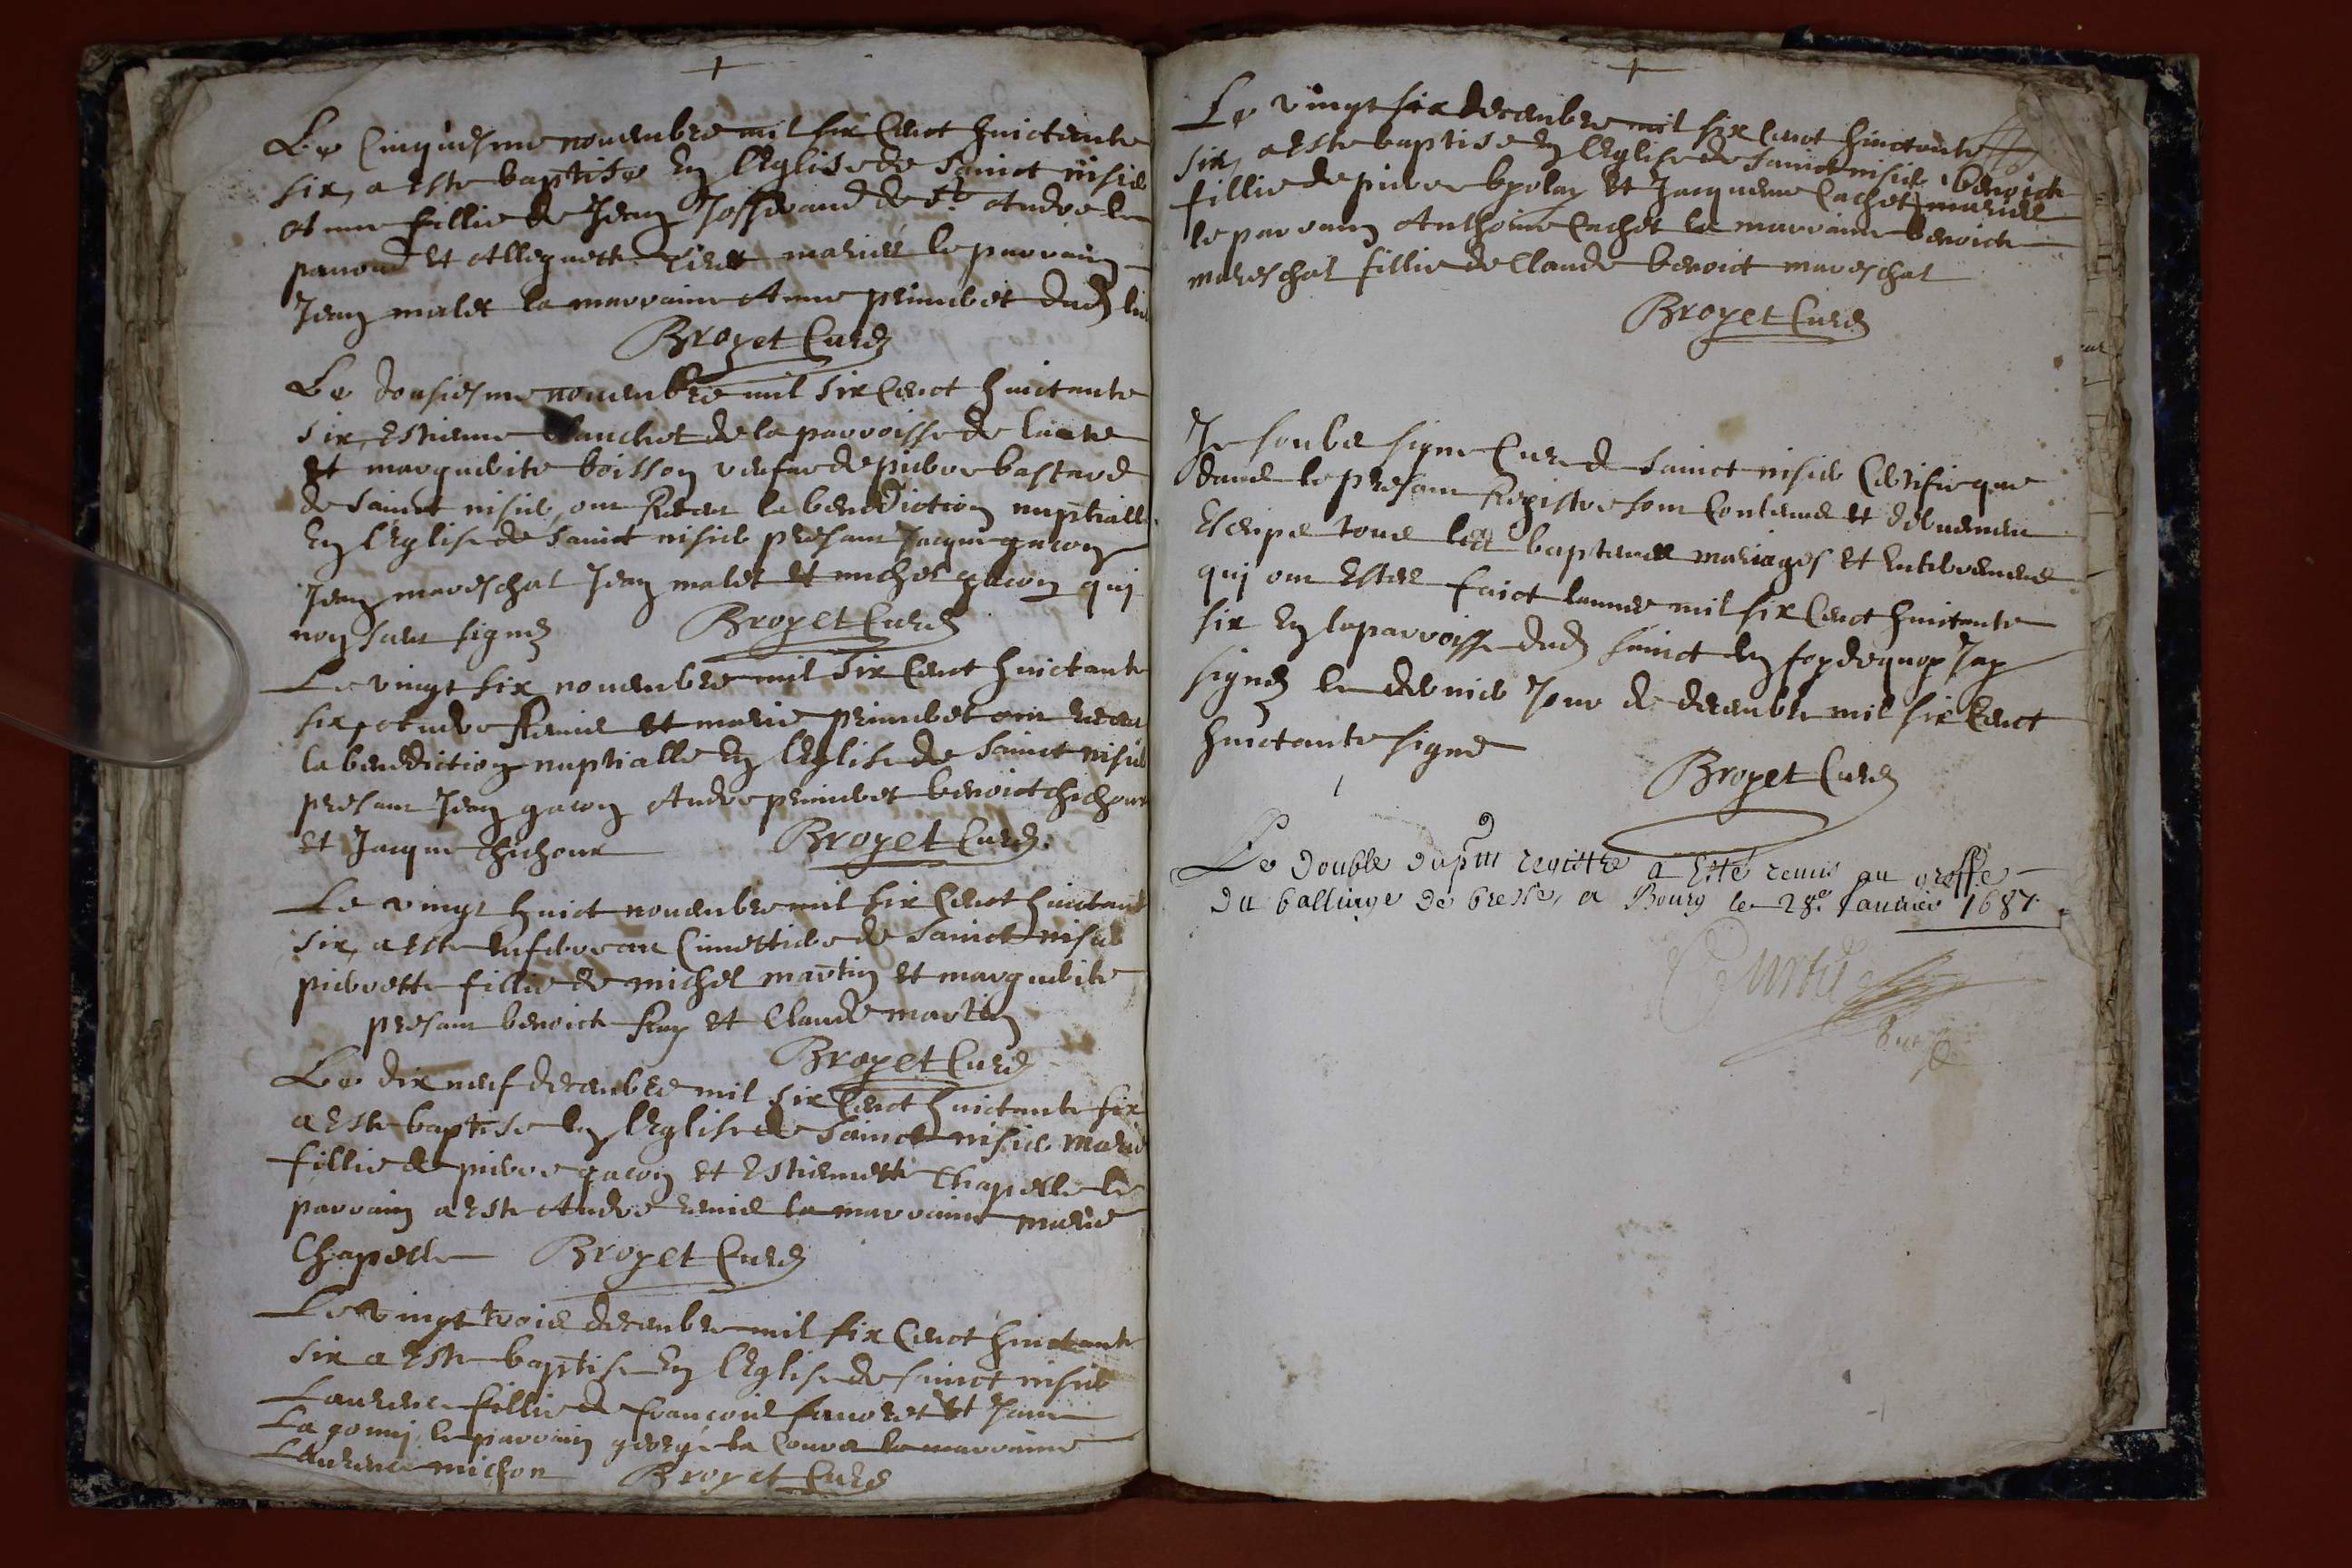 Le Cinquiesme novembre mil six Cent huictante
six, a este baptise En lEglise de Sainct nisier
Anne fillie de Jean Josserand de St Andre le
panoud Et mariés le parrain
Jean malet la marraine Anne primbet dud lieu
Broyet Curé
Le dousiesme novembre mil six Cent huictante
six, Estienne de la parroisse de
Et marguerite boisson vefue de pierre bastard
de Sainct nisier, ont Receu la benediction nuptialle
En lEglise de Sainct nisier presant Jacque gacon
Jean mareschal Jean malet Et michel gacon qui
nont sceu signé Broyet Curé
Le vingt six novembre mil six Cent huictante
six, Andre Renid Et marie primbet ont receu
la benediction nuptialle En lEglise de Sainct nisier
presant Jean gacon Andre primbet benoict chichoux
Et Jacque Chichoux Broyet Curé
Le vingt huict novembre mil six Cent huictante
six, a este Enterre au Cimettiere de Sainct nisier
pierrette fillie de michel martin Et marguerite
presant benoict Et Claude martin
Broyet Curé
Le dix neuf decembre mil six Cent huictante six
a Este baptise En lEglise de Sainct nisier Marie
fillie de pierre gacon Et Estiennette Chapelle le
parrain a Este Andre la marraine marie
Chapelle Broyet Curé
Le vingt trois decembre mil six Cent huictante
six a Este baptise En lEglise de sainct nisier
Laurence fillie de francois Et
le parrain george la marraine
Laurence michon Broyet Curé
Le vingt six decembre mil six Cent huictante
six, a Este baptise En lEglise de Sainct nisier benoicte
fillie de pierre Et Jacqueme Cachet mariés
le parrain Anthoine Cachet la marraine benoicte
mareschal fillie de Claude benoict mareschal
Broyet Curé
Je soubs signe Cure de Sainct nisier Certifie que
dans le presant Registre sont Contenus Et deuement
Escripts tous les baptemes mariages Et Enterrements
qui ont Estes faict lannee mil six Cent huictante
six En la parroisse dud Sainct En foy de quoy Jay
signé le dernier Jour de decembre mil six Cent
huictante signé
Broyet Curé
Le double du pnt registre a Esté remis au greffe
du balliage de bresse, a Bourg le 28e Januier 1687